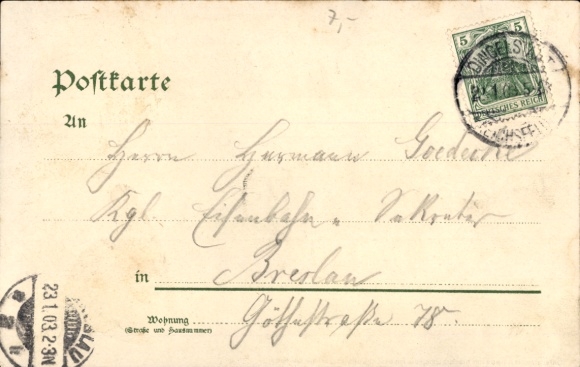 7,-
5 5
DEUTSCHES REICH
DINGELSTÄDT
EICHSFELD
Postkarte
An
Herrn Hermann Goedecke
Kgl. Eisenbahn-Sekretär
in Breslau
Wohnung
(Straße und Hausnummer)
Göthestraße 78.
BRESLAU
23.1.03.2-3N